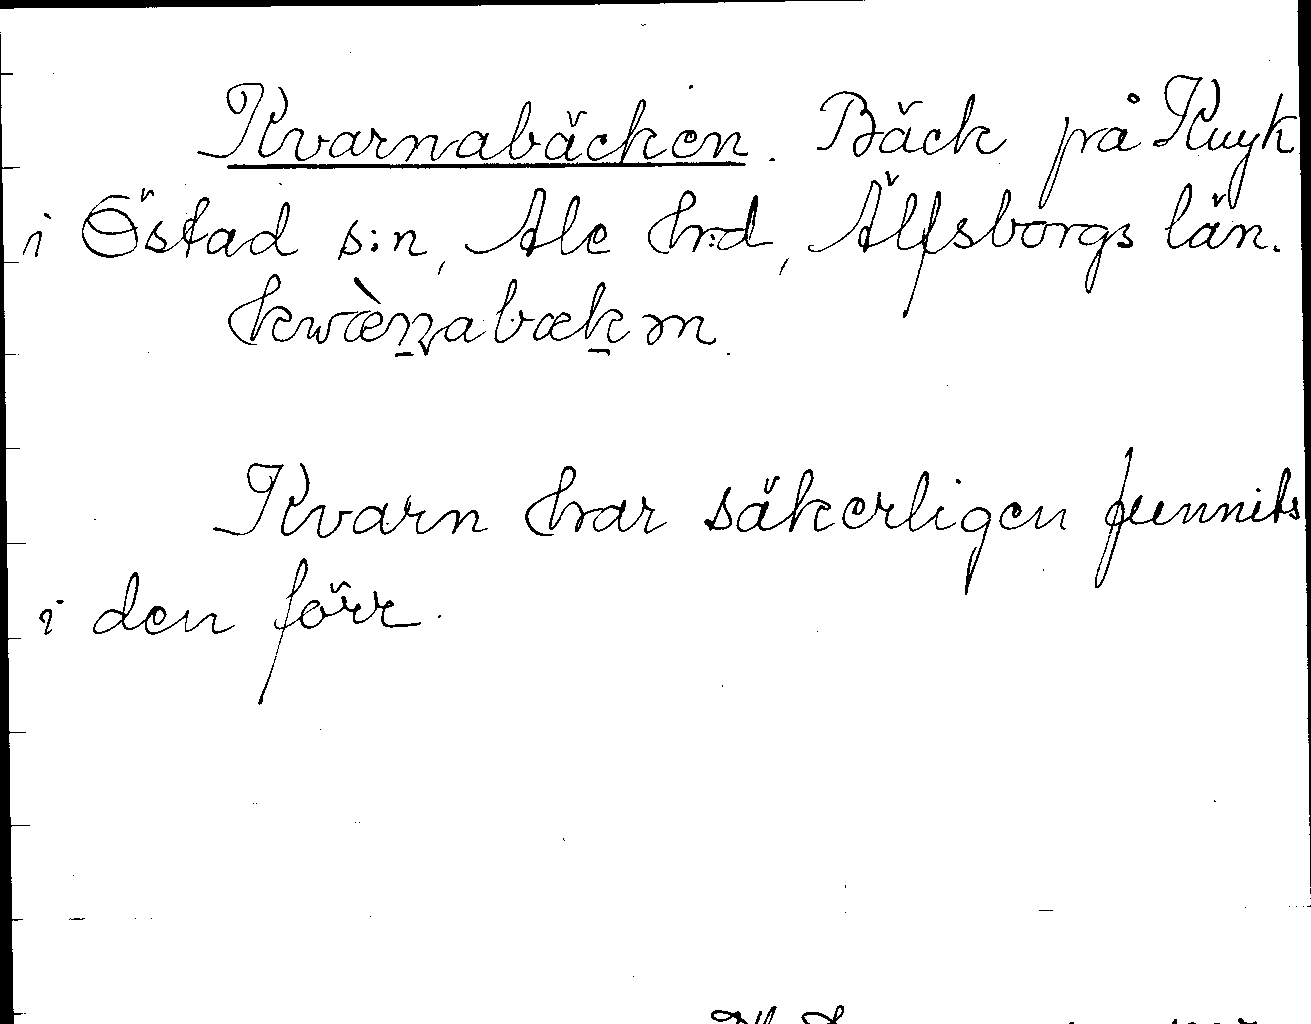 Kvarnabäcken. Bäck på Kuyk
i Östad s:n, Ale hrd, Älfsborgs län.
kwæ̀n̠n̠abæk̠m.
Kvarn har säkerligen funnits
i den förr.